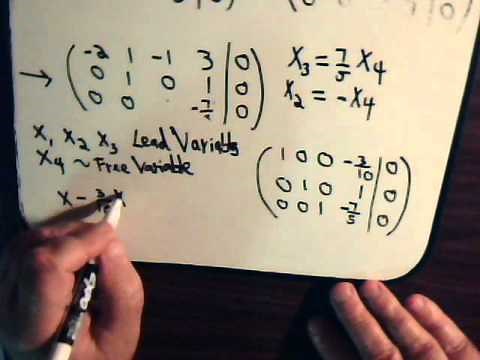 → ( -2 1 -1 3 | 0 )
( 0 1 0 1 | 0 )
( 0 0 -7/ | 0 )
X₃ = 7/5 X₄
X₂ = -X₄
X₁ X₂ X₃ Lead Variables
X₄ ~ Free Variable
X - 3/10 X
( 1 0 0 -3/10 | 0 )
( 0 1 0 1 | 0 )
( 0 0 1 -7/5 | 0 )